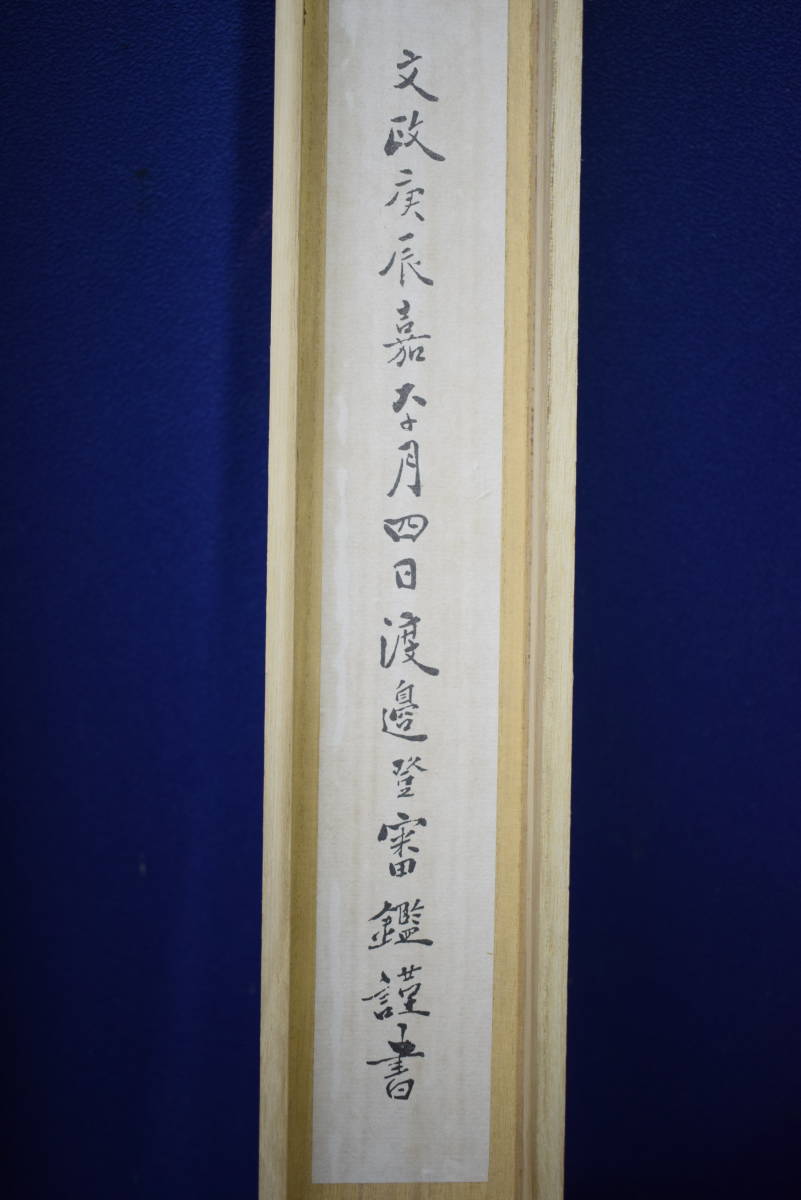 文政庚辰嘉平月四日渡邊登審鑑謹書